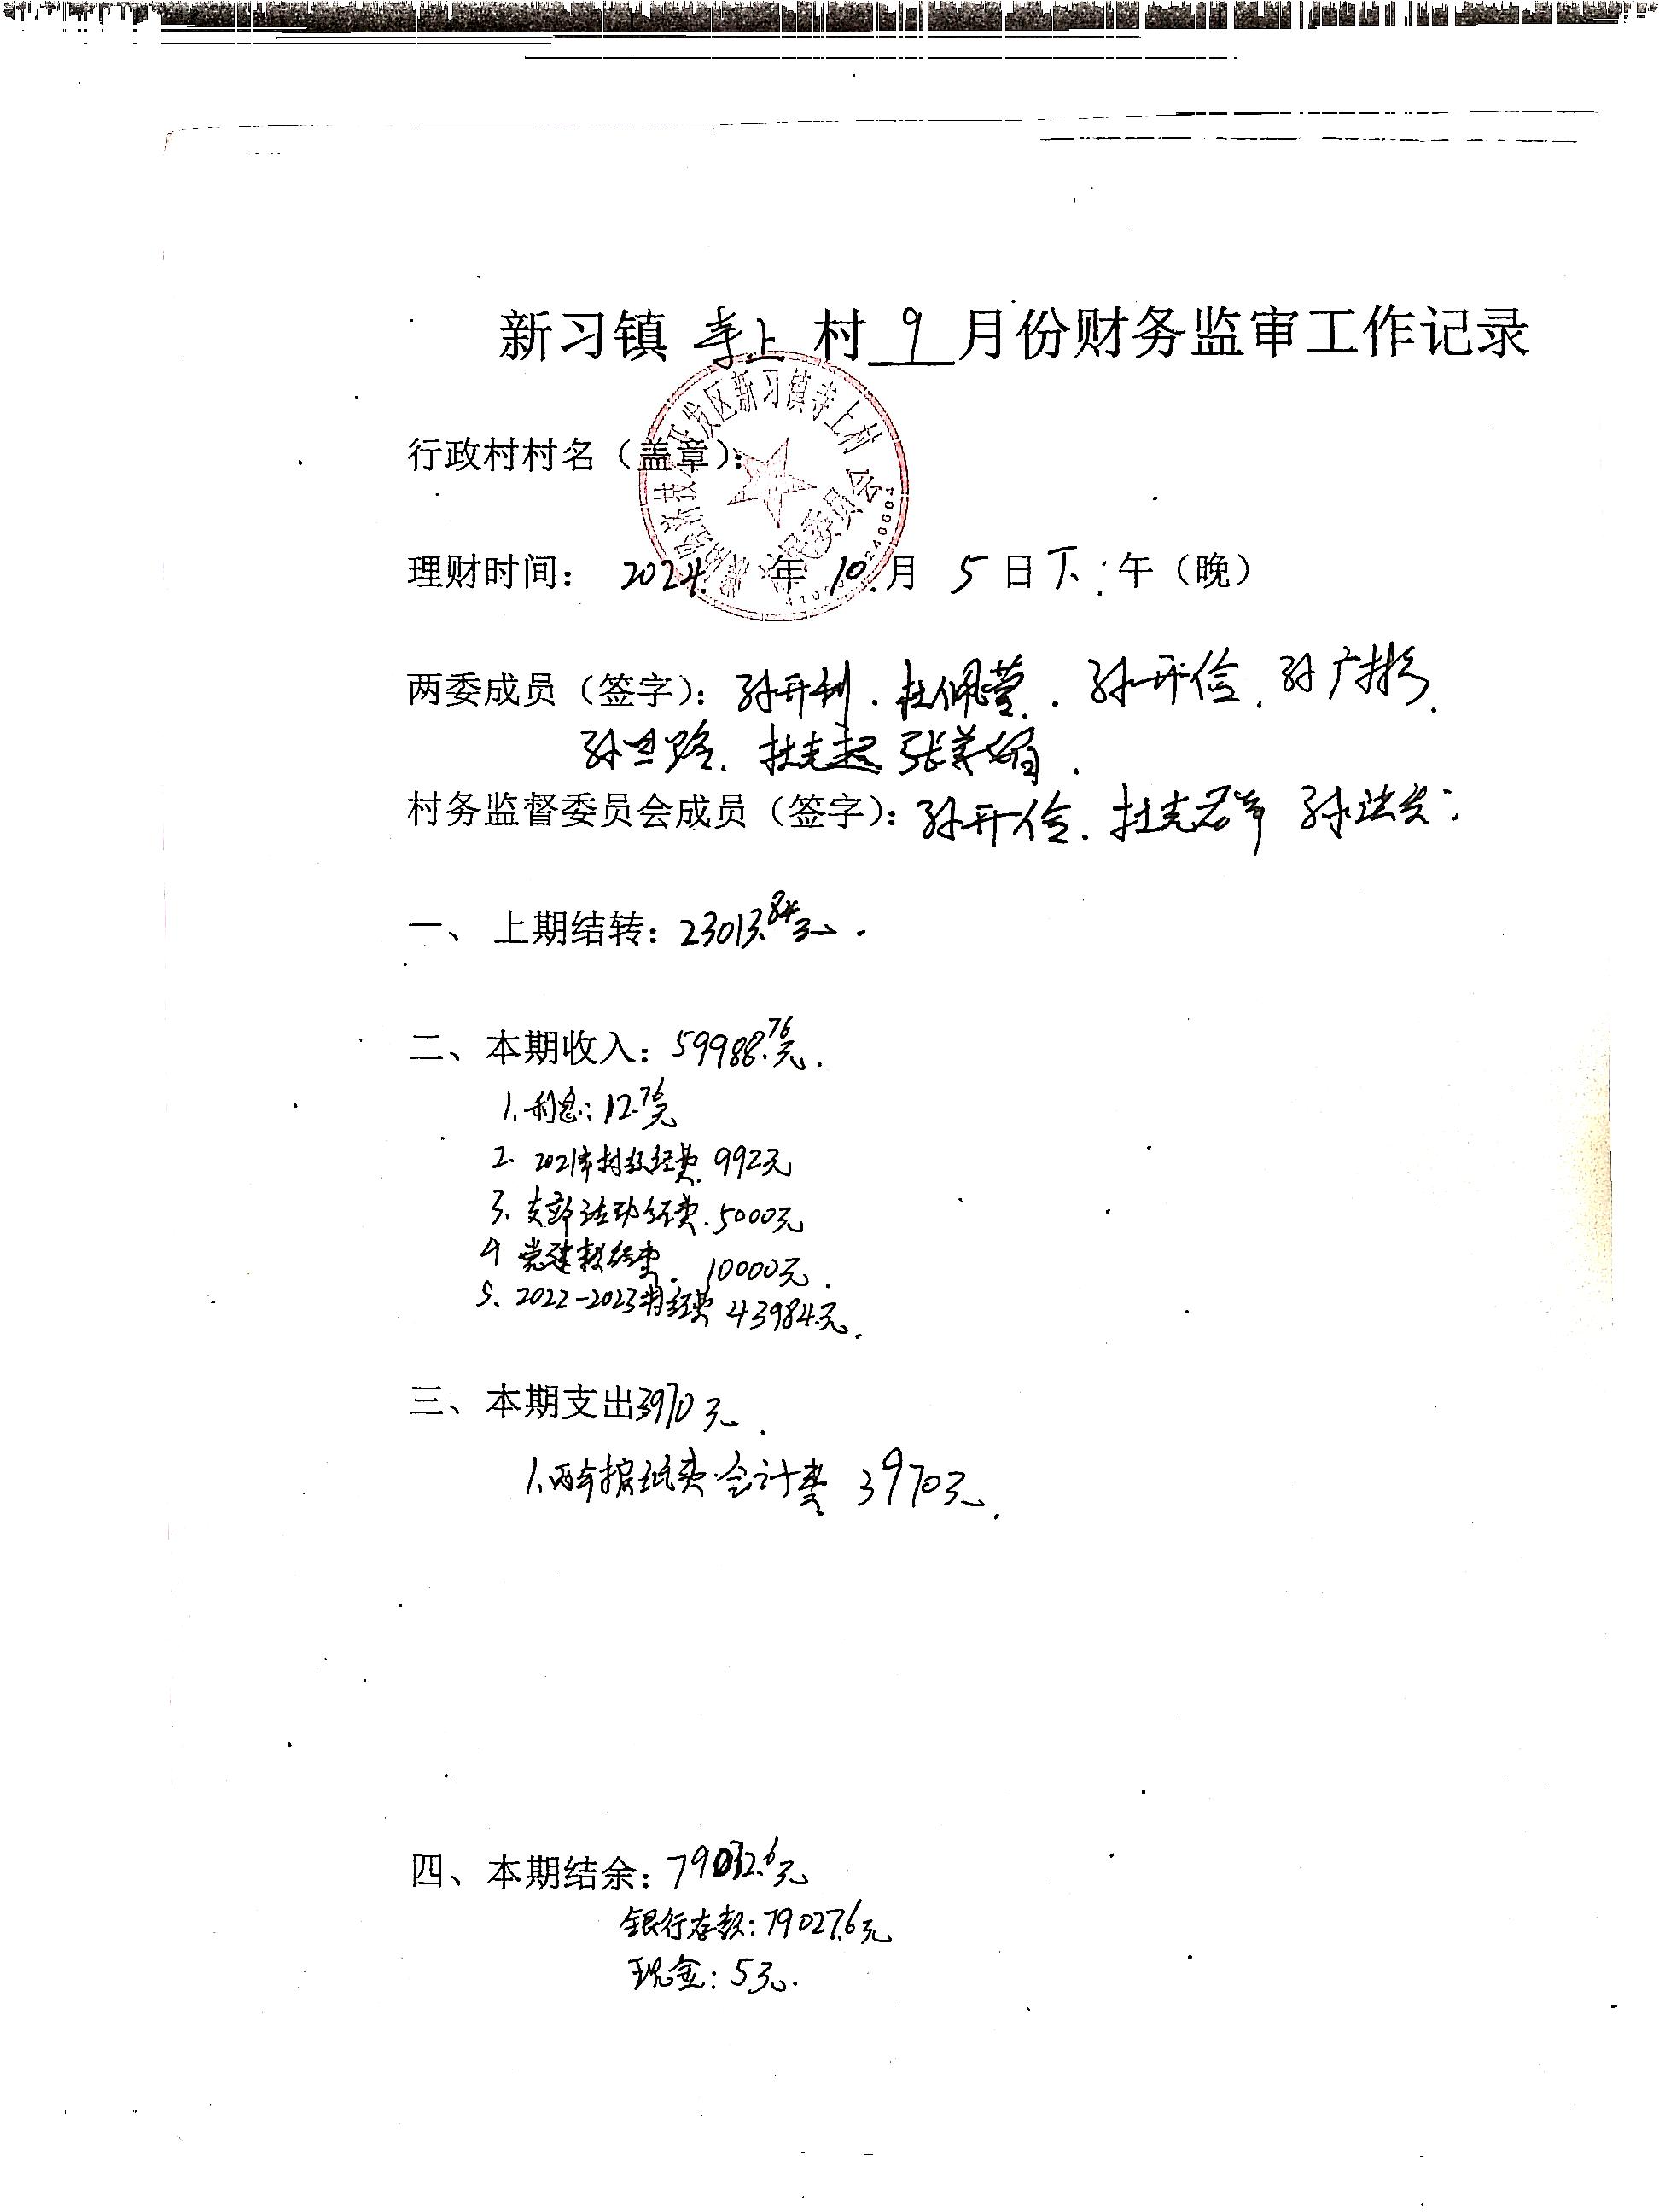 新习镇 寺上 村 9 月份财务监审工作记录
行政村村名（盖章）：
新习镇寺上村
理财时间： 2024 年 10 月 5 日下午（晚）
两委成员（签字）：孙开利．杜佩莹．孙开俭．孙广彬．
孙 路．杜克起 张美娟．
村务监督委员会成员（签字）：孙开俭．杜克 孙法
一、 上期结转：23013.84元．
二、本期收入：59988.76元．
1. 利息：12.76元
2. 2021年村级经费 992元
3. 支部活动经费．5000元
4 党建 经费．10000元．
5、2022-2023 经费 43984元．
三、本期支出3970元．
1. 两年报纸费．会计费 3970元．
四、本期结余：79032.6元
银行存款：79027.6元
现金：5元．